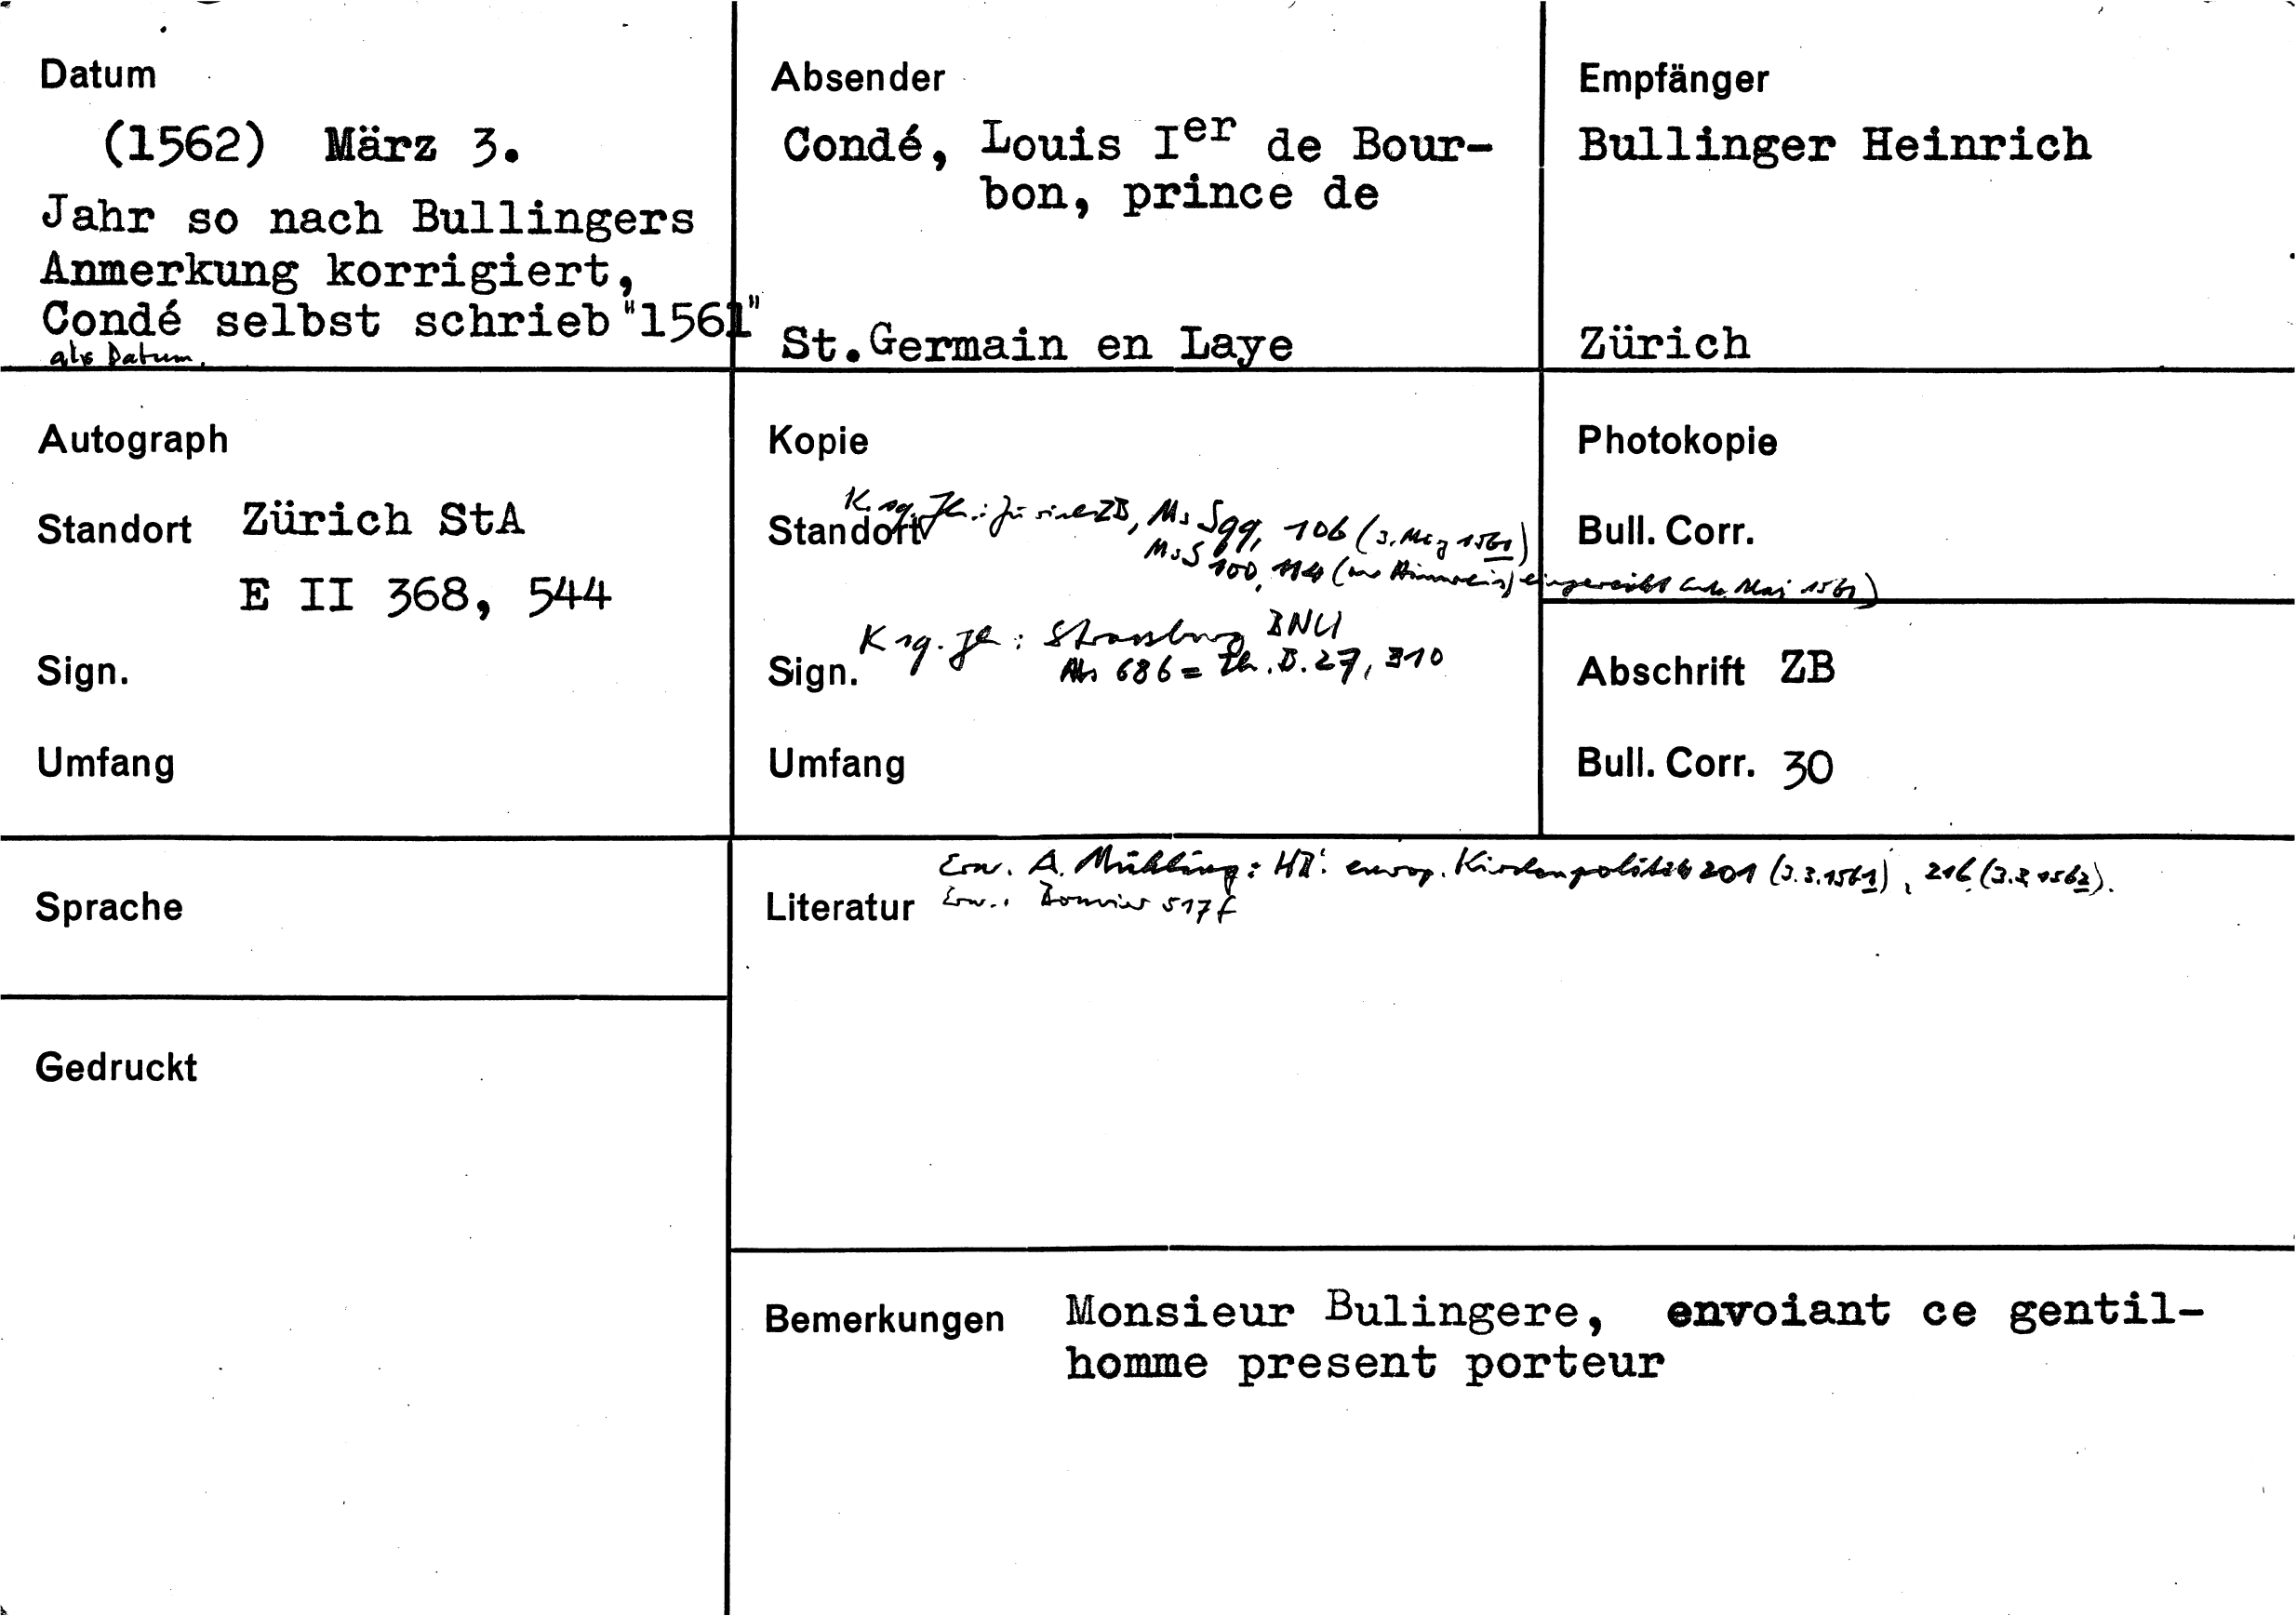 Datum
(1562) März 3.
Jahr so nach Bullingers
Anmerkung korrigiert,
Condé selbst schrieb "1561"
als Datum.
Absender
Condé, Louis Ier de Bour-
bon, prince de
St.Germain en Laye
Empfänger
Bullinger Heinrich
Zürich
Autograph
Standort Zürich StA
E II 368, 544
Sign.
Umfang
Kopie
Standort ZB, Ms S 99, 106 (3. März 1561)
Ms S 100, 114 ( Hinweis) eingereiht Mai 1561)
K 19. Jh: Strassburg BNU
Sign. Ms 686 = Th. B. 27, 310
Umfang
Photokopie
Bull. Corr.
Abschrift ZB
Bull. Corr. 30
Sprache
Literatur Erw. A. Mühling: HB. europ. Kirchenpolitik 201 (3.3.1561), 216 (3.3.1562).
Erw.: Bouvier 517f
Gedruckt
Bemerkungen Monsieur Bulingere, envoiant ce gentil-
homme present porteur